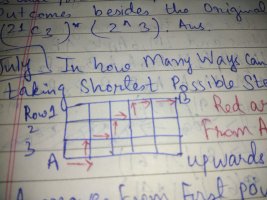 Outcomes besides the Original
(21C2)* (2^3). Ans.
July In how Many Ways Can
taking Shortest Possible Ste
Row1 B Red ar
2 From A
3
A upwards
From First po